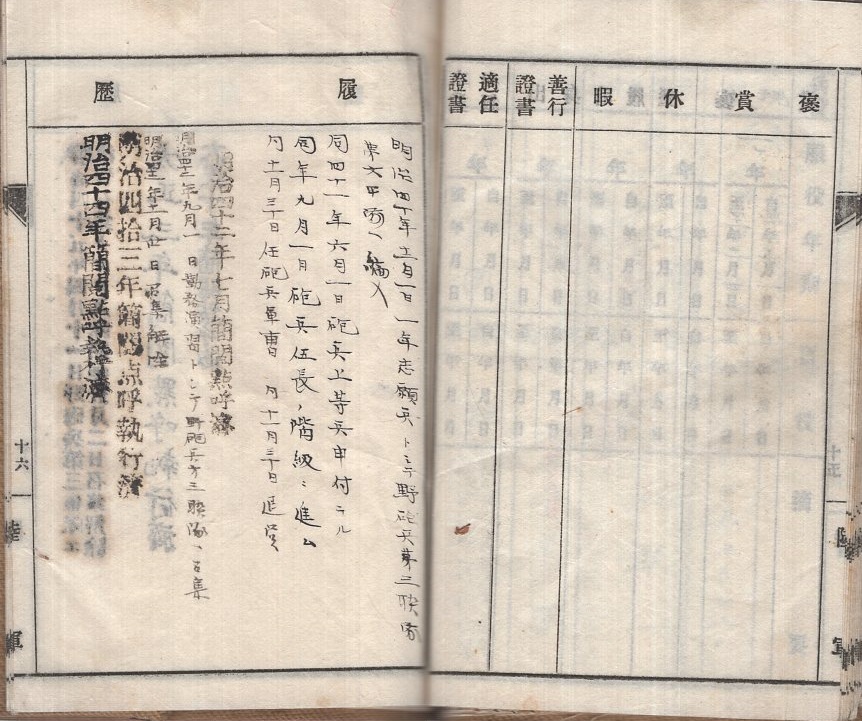 褒賞休暇
善行證書
適任證書
十五
陸軍
履歴
明治四十年十二月一日一年志願兵トシテ野砲兵第三聯隊
第六中隊ヘ編入
同四十一年六月一日砲兵上等兵申付ラル
同年九月一日砲兵伍長ノ階級ニ進ム
同十一月三十日任砲兵軍曹 同十一月三十日退営
明治四十二年七月簡閲點呼済
明治四十三年九月一日勤務演習トシテ野砲兵第三聯隊ヘ召集
日召集解除
明治四拾三年簡閲点呼執行済
明治四十四年簡閲點呼執行済
十六
陸軍